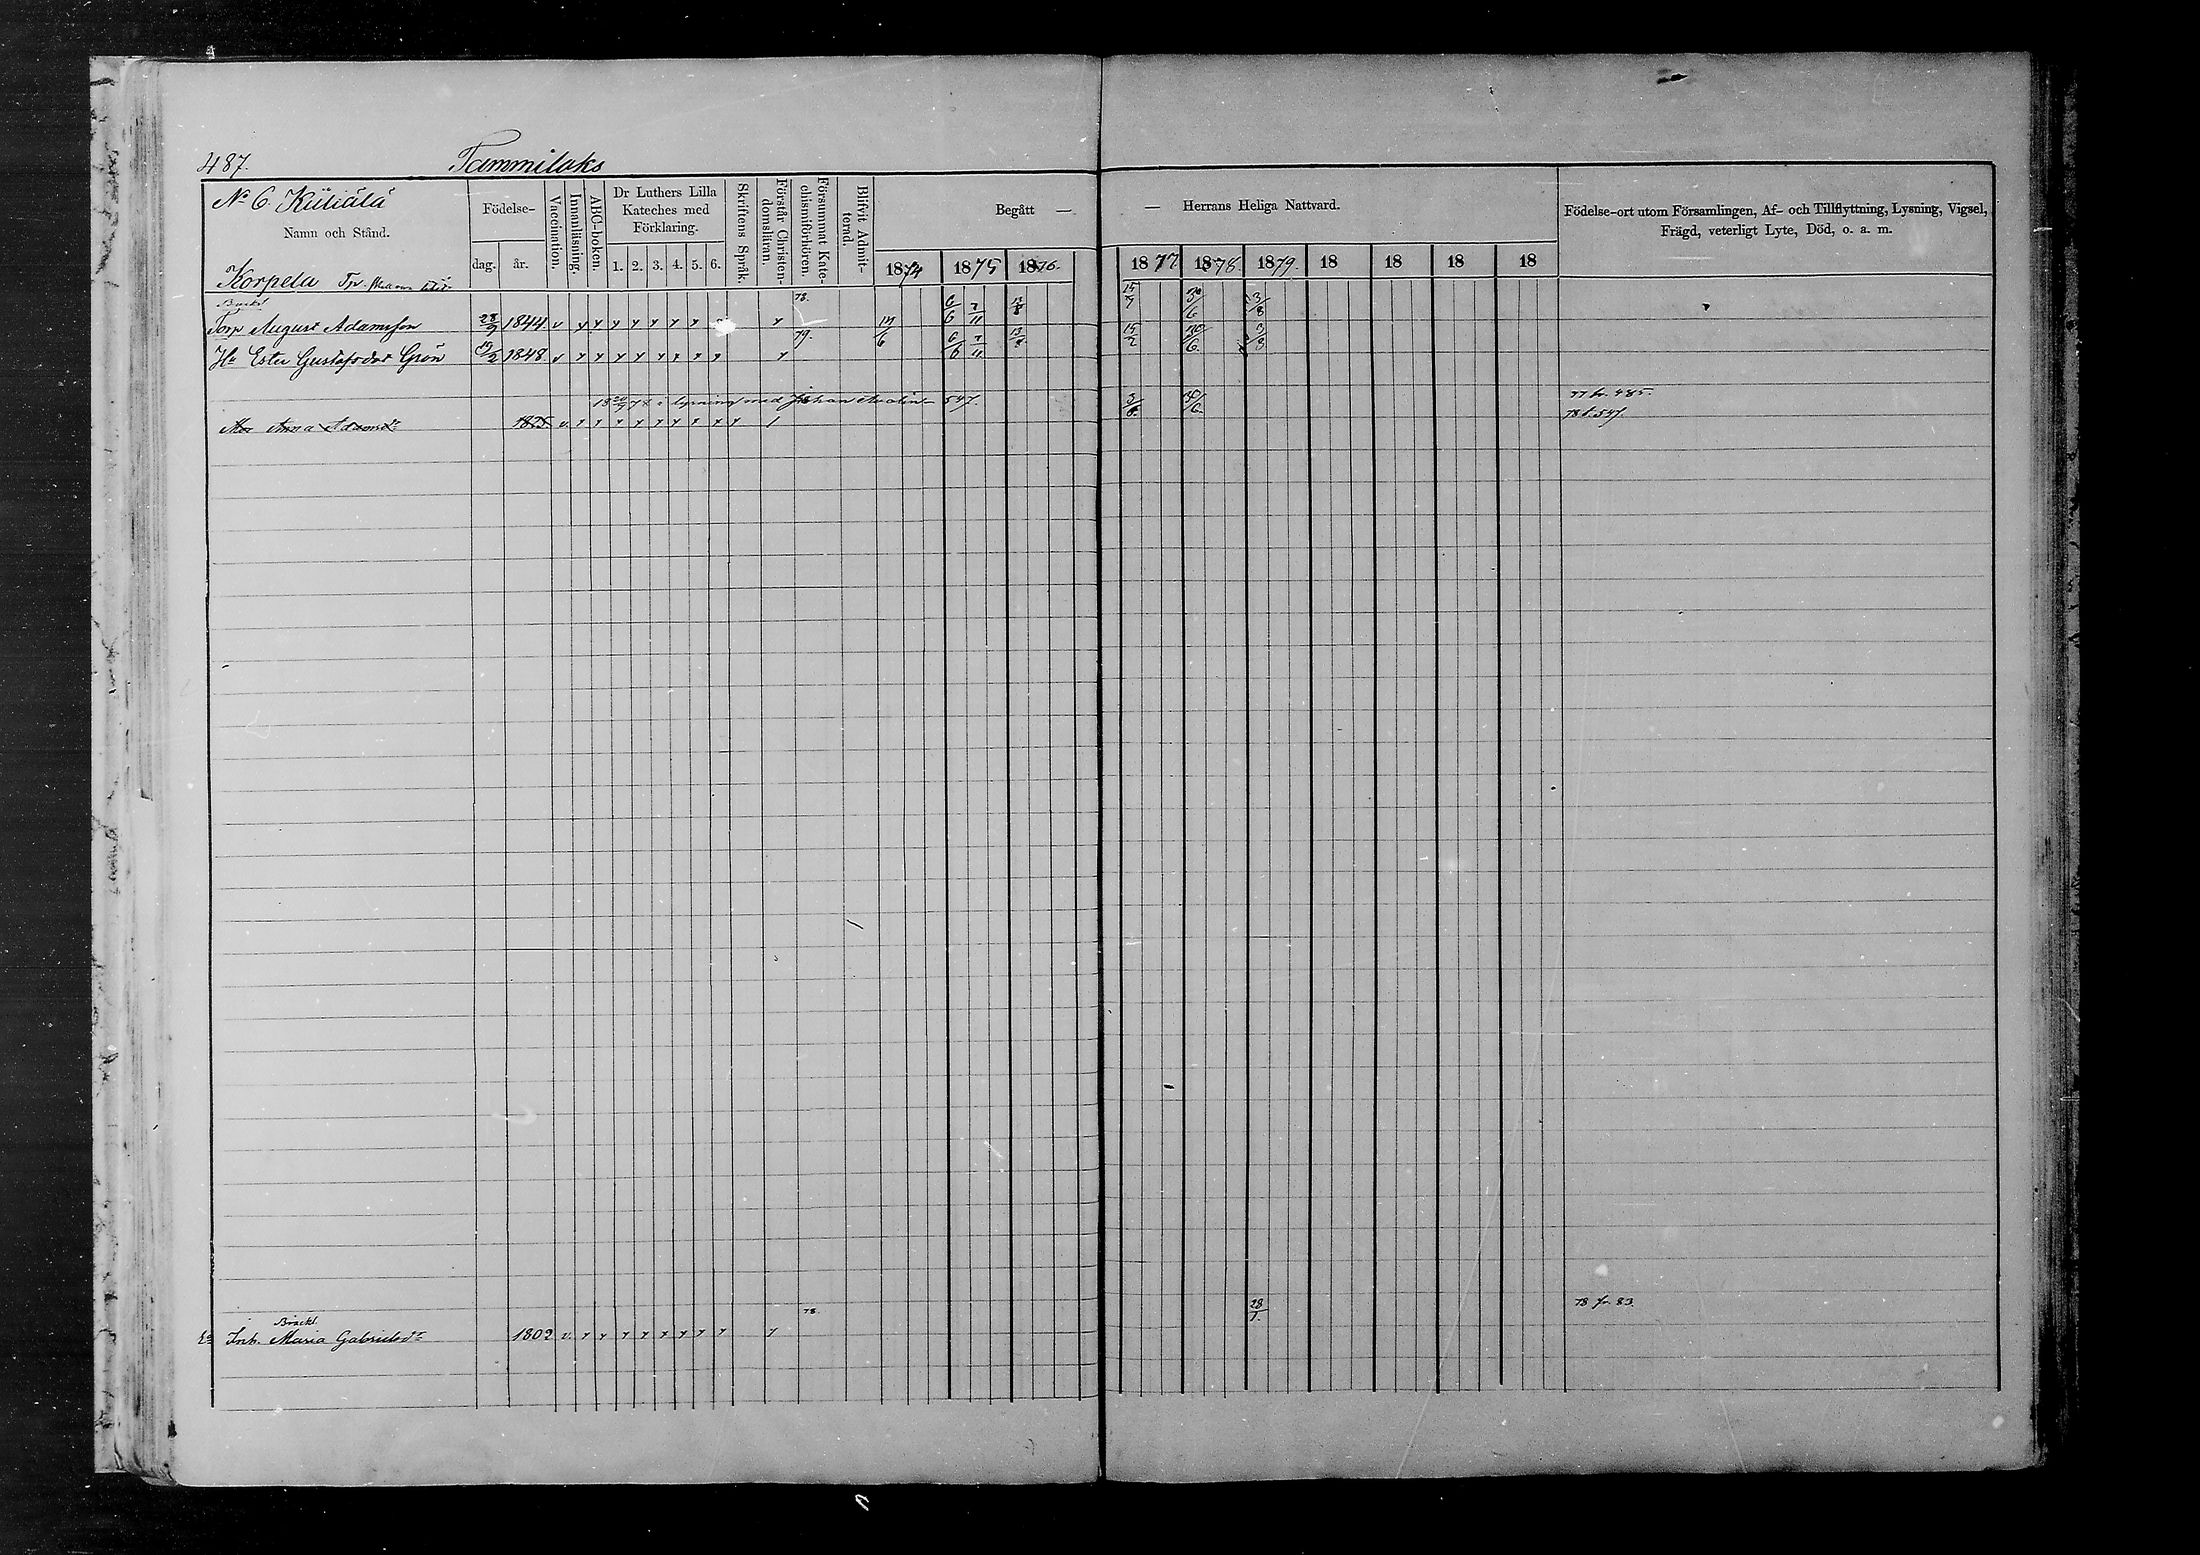 487. Tammilaks
No 6 Kiiliälä
Namn och Stånd.
Födelse-
dag. år.
Vaccination.
Innanläsning.
ABC-boken.
Dr Luthers Lilla
Kateches med
Förklaring.
1. 2. 3. 4. 5. 6.
Skriftens Språk.
Förstår Christen-
domsläran.
Försummat Kate-
chismiförhören.
Blifvit Admit-
terad.
Begått —
— Herrans Heliga Nattvard.
1874 1875 1876. 1877 1878. 1879. 18 18 18 18
Födelse-ort utom Församlingen, Af- och Tillflyttning, Lysning, Vigsel,
Frägd, veterligt Lyte, Död, o. a. m.
Korpela Tp.
Bräckl.
Torp August Adamsson 28/9 1844 v y y y y y y y y 78. 14/6 6/6 7/11 15/7 30/6 3/8
Hu Ester Gustafsdotr Grön 19/2 1848 v y y y y y y y y y 79. 6/6 7/11 15/2 30/6 3/8
lysning med Johan Malin 547.
77 fr. 485.
Anna Adamsdr 1825 v y y y y y y y y y 3/6. 30/6.
78 t. 547.
Bräckl.
Enk. Inh. Maria Gabrielsdr 1802 v. y y y y y y y y y 78. 28/7. 78 fr. 83.